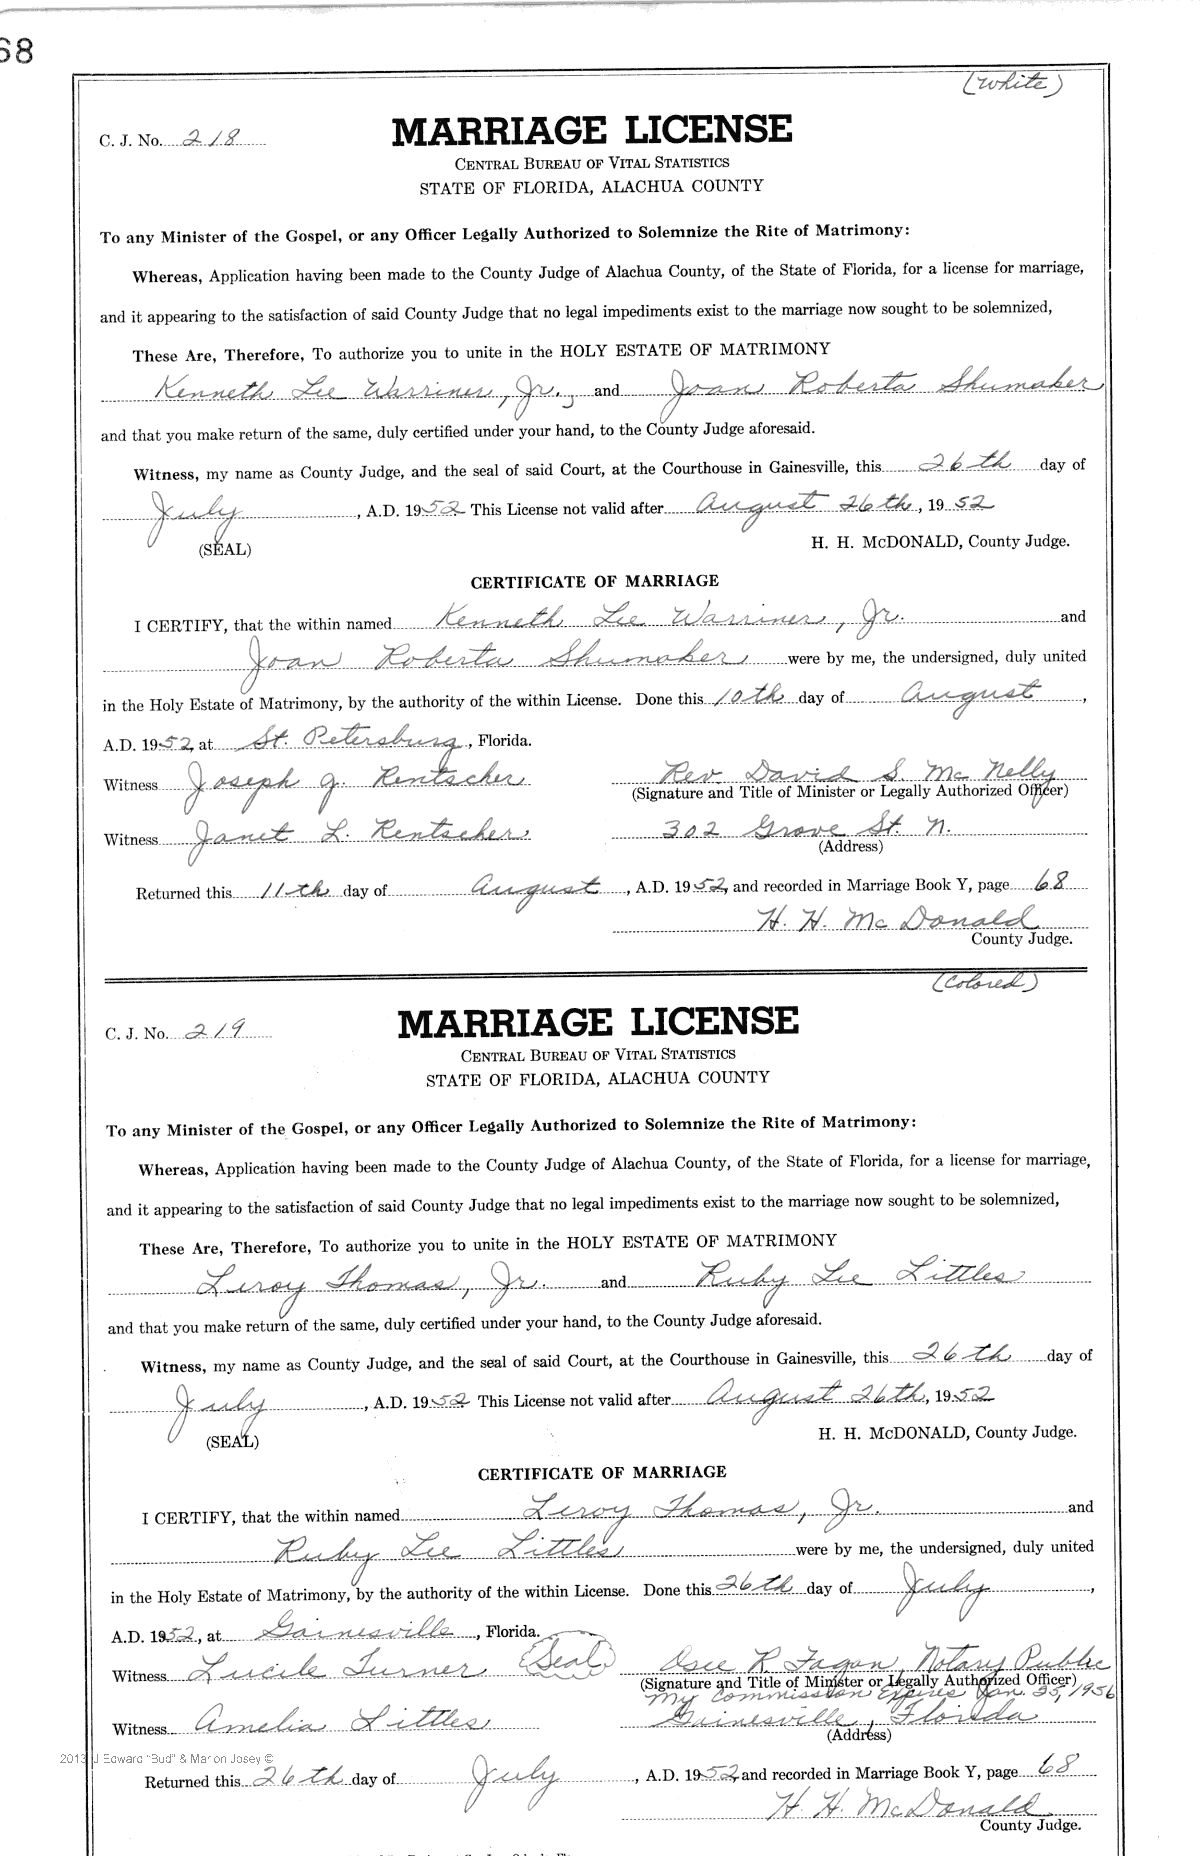 68
(White)
C. J. No. 218
MARRIAGE LICENSE
CENTRAL BUREAU OF VITAL STATISTICS
STATE OF FLORIDA, ALACHUA COUNTY
To any Minister of the Gospel, or any Officer Legally Authorized to Solemnize the Rite of Matrimony:
Whereas, Application having been made to the County Judge of Alachua County, of the State of Florida, for a license for marriage,
and it appearing to the satisfaction of said County Judge that no legal impediments exist to the marriage now sought to be solemnized,
These Are, Therefore, To authorize you to unite in the HOLY ESTATE OF MATRIMONY
Kenneth Lee Warriner, Jr., and Joan Roberta Shumaker
and that you make return of the same, duly certified under your hand, to the County Judge aforesaid.
Witness, my name as County Judge, and the seal of said Court, at the Courthouse in Gainesville, this 26th day of
July, A.D. 1952 This License not valid after August 26th, 1952
(SEAL) H. H. McDONALD, County Judge.
CERTIFICATE OF MARRIAGE
I CERTIFY, that the within named Kenneth Lee Warriner, Jr. and
Joan Roberta Shumaker were by me, the undersigned, duly united
in the Holy Estate of Matrimony, by the authority of the within License. Done this 10th day of August,
A.D. 1952, at St. Petersburg, Florida.
Witness Joseph J. Rentscher Rev. David S. Mc Nelly
(Signature and Title of Minister or Legally Authorized Officer)
Witness Janet L. Rentscher 302 Grove St. N.
(Address)
Returned this 11th day of August, A.D. 1952, and recorded in Marriage Book Y, page 68
H. H. McDonald
County Judge.
(Colored)
C. J. No. 219
MARRIAGE LICENSE
CENTRAL BUREAU OF VITAL STATISTICS
STATE OF FLORIDA, ALACHUA COUNTY
To any Minister of the Gospel, or any Officer Legally Authorized to Solemnize the Rite of Matrimony:
Whereas, Application having been made to the County Judge of Alachua County, of the State of Florida, for a license for marriage,
and it appearing to the satisfaction of said County Judge that no legal impediments exist to the marriage now sought to be solemnized,
These Are, Therefore, To authorize you to unite in the HOLY ESTATE OF MATRIMONY
Leroy Thomas, Jr. and Ruby Lee Littles
and that you make return of the same, duly certified under your hand, to the County Judge aforesaid.
Witness, my name as County Judge, and the seal of said Court, at the Courthouse in Gainesville, this 26th day of
July, A.D. 1952 This License not valid after August 26th, 1952
(SEAL) H. H. McDONALD, County Judge.
CERTIFICATE OF MARRIAGE
I CERTIFY, that the within named Leroy Thomas, Jr. and
Ruby Lee Littles were by me, the undersigned, duly united
in the Holy Estate of Matrimony, by the authority of the within License. Done this 26th day of July,
A.D. 1952, at Gainesville, Florida.
Witness Lucile Turner Seal Osee R. Fagan, Notary Public
(Signature and Title of Minister or Legally Authorized Officer)
My Commission Expires Jan. 25, 1956
Witness Amelia Littles Gainesville, Florida
(Address)
2013 J Edward "Bud" & Marion Josey ©
Returned this 26th day of July, A.D. 1952, and recorded in Marriage Book Y, page 68
H. H. McDonald
County Judge.